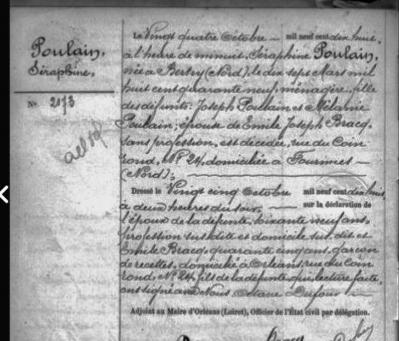 Poulain,
Séraphine.
N° 2073
Le Vingt quatre Octobre — mil neuf cent dix huit,
à l'heure de minuit, Séraphine Poulain,
née à Bertry (Nord), le dix sept Mars mil
huit cent quarante neuf, ménagère, fille
des défunts: Joseph Poulain et Mélanie
Poulain; épouse de Emile Joseph Bracq,
sans profession, est décédée, rue du Coin
rond, N° 24, domiciliée à
(Nord);
Dressé le Vingt cinq Octobre mil neuf cent dix huit
à deux heures du soir, — sur la déclaration de
l'époux de la défunte, soixante neuf ans,
profession susdite et domicile susdit et
Emile Bracq, quarante cinq ans, garçon
de recettes, domicilié à Orléans, rue du Coin
rond, N° 24, fils de la défunte, qui, lecture faite,
ont signé avec Nous Dufour
Adjoint au Maire d'Orléans (Loiret), Officier de l'État civil par délégation.